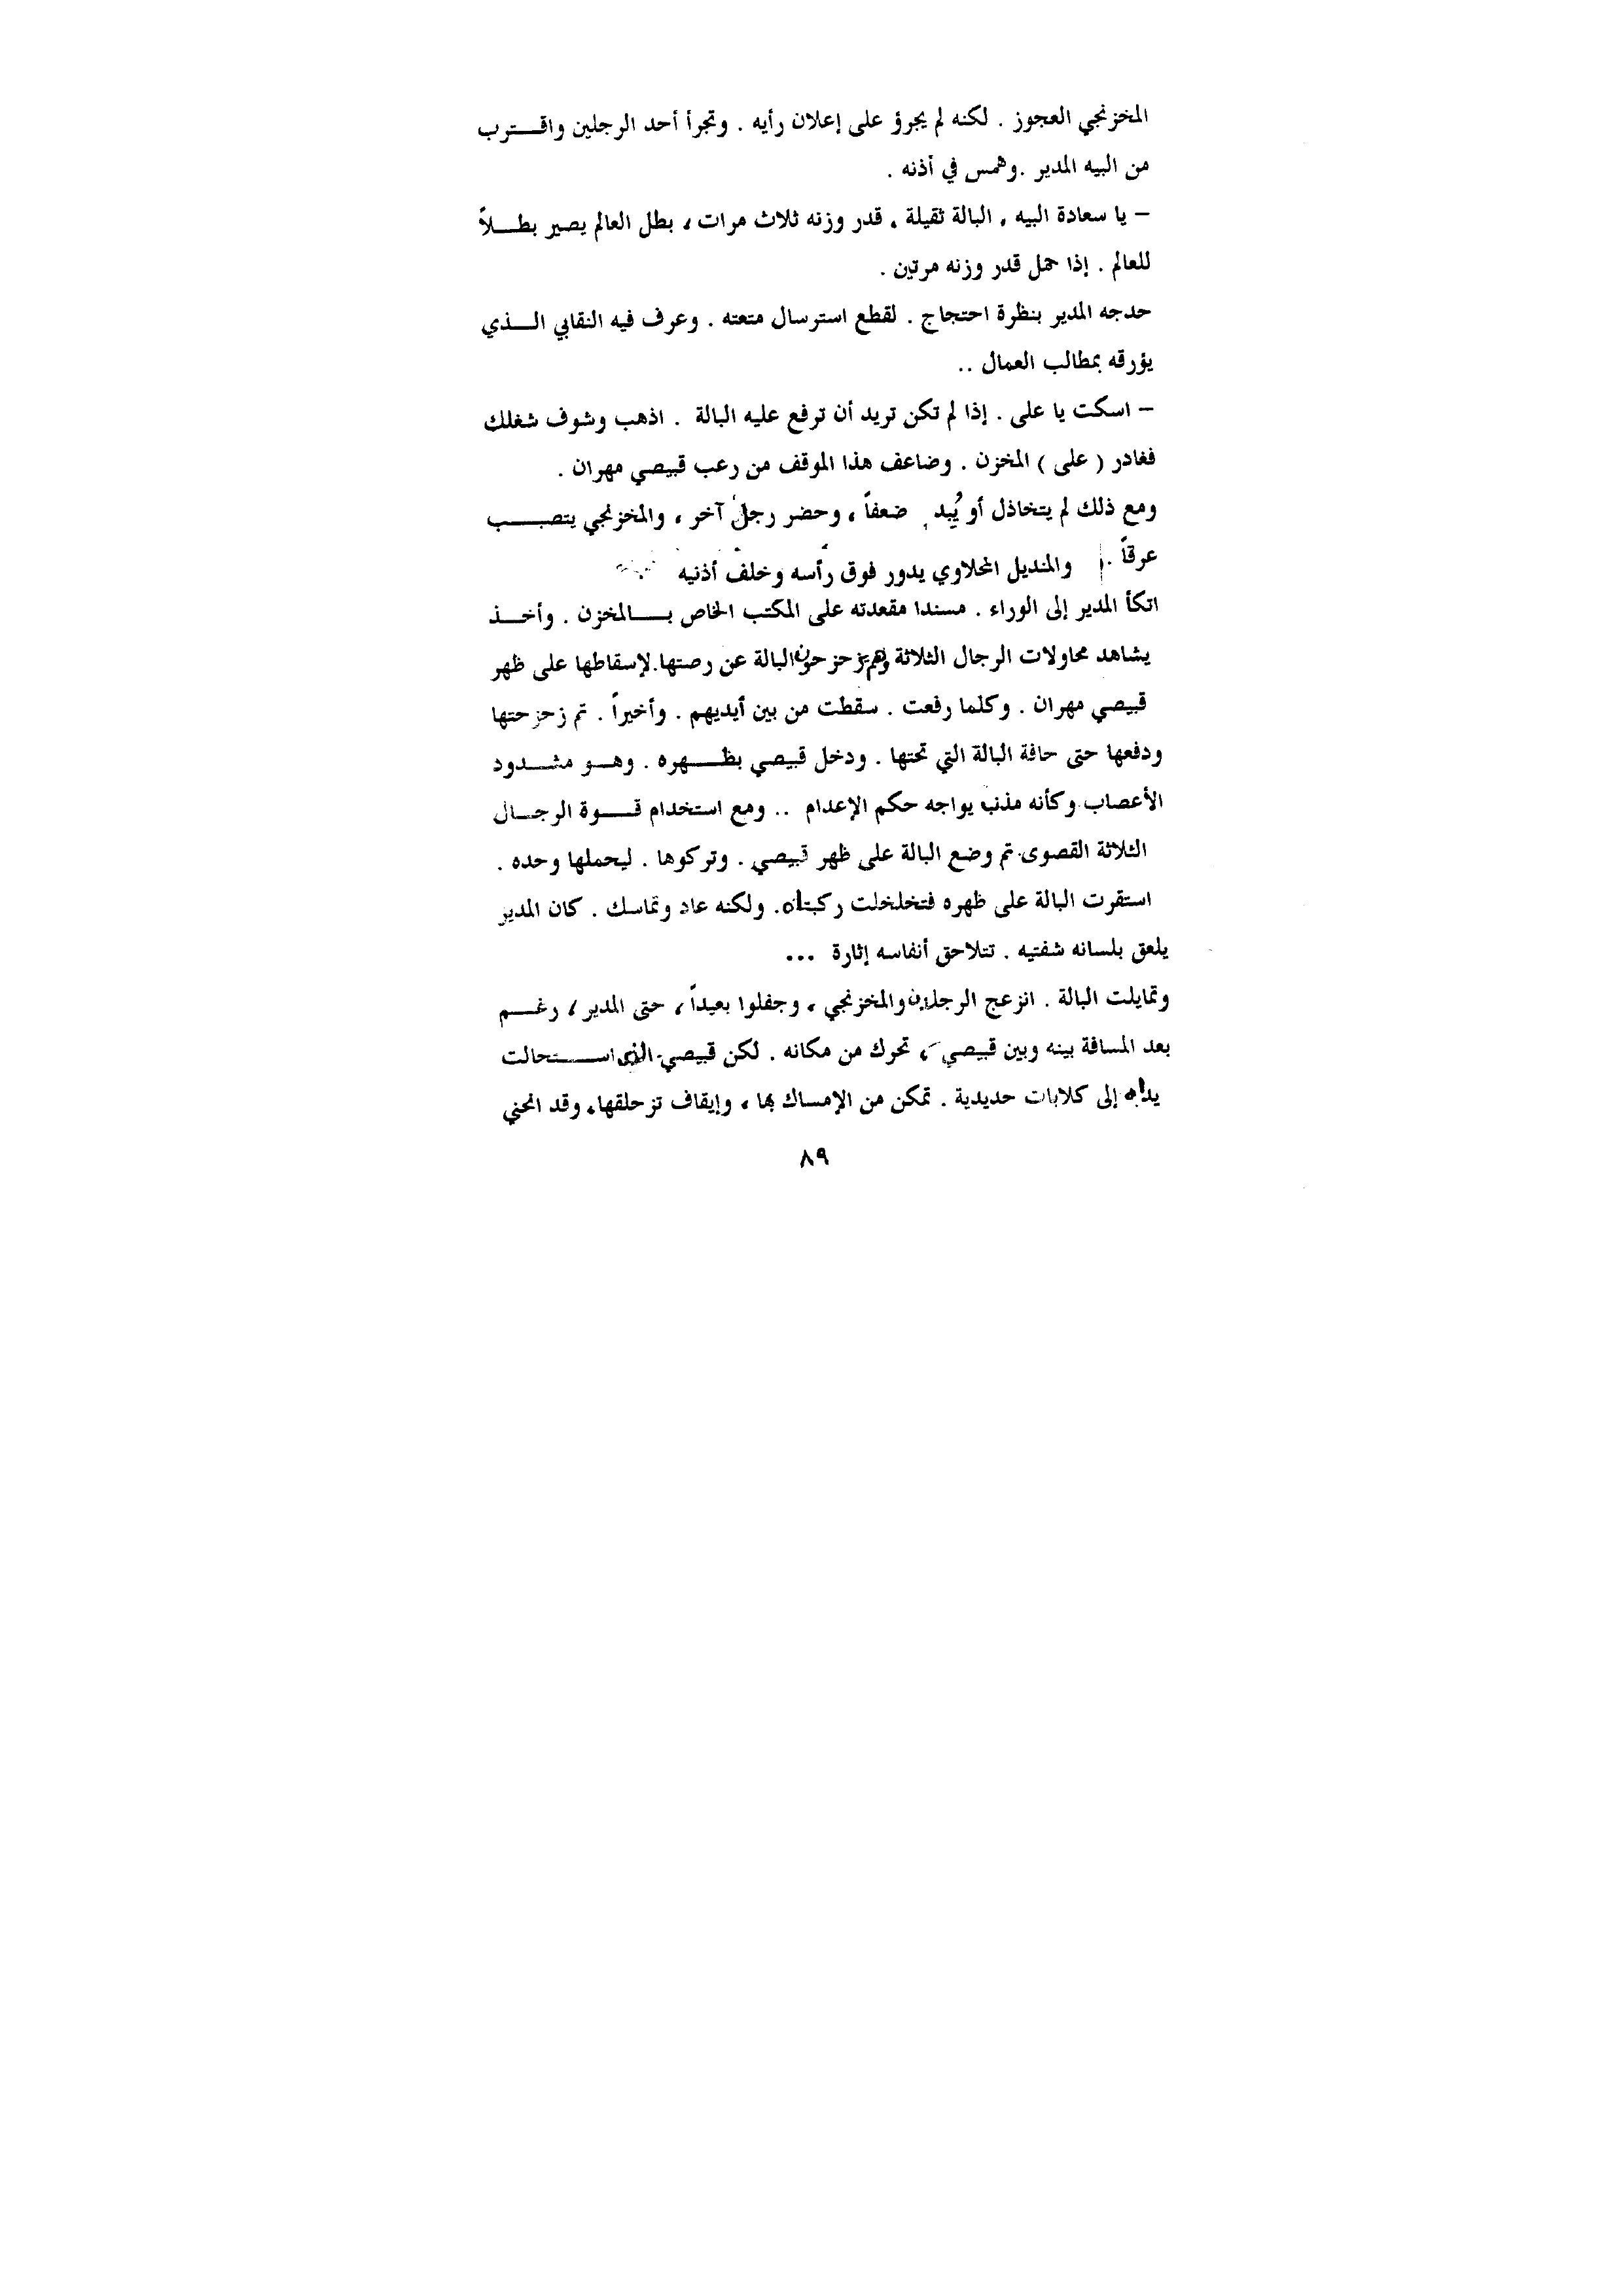 المخزنجي العجوز . لكنه لم يجرؤ على إعلان رأيه . وتجرأ أحد الرجلين واقترب
من البيه المدير .وهمس في أذنه .
– يا سعادة البيه , البالة ثقيلة , قدر وزنه ثلاث مرات ، بطل العالم يصير بطلاً
للعالم . إذا حمل قدر وزنه مرتين .
حدجه المدير بنظرة احتجاج . لقطع استرسال متعته . وعرف فيه النقابي الذي
يؤرقه بمطالب العمال ..
– اسكت يا على . إذا لم تكن تريد أن ترفع عليه البالة . اذهب وشوف شغلك
فغادر ( على ) المخزن . وضاعف هذا الموقف من رعب قبيصي مهران .
ومع ذلك لم يتخاذل أو يُبد ضعفاً ، وحضر رجل آخر ، والمخزنجي يتصبب
عرقاً . والمنديل المحلاوي يدور فوق رأسه وخلف أذنيه
اتكأ المدير إلى الوراء . مسندا مقعدته على المكتب الخاص بالمخزن . وأخذ
يشاهد محاولات الرجال الثلاثة وهم يزحزحون البالة عن رصتها.لإسقاطها على ظهر
قبيصي مهران . وكلما رفعت . سقطت من بين أيديهم . وأخيراً . تم زحزحتها
ودفعها حتى حافة البالة التي تحتها . ودخل قبيصي بظهره . وهو مشدود
الأعصاب وكأنه مذنب يواجه حكم الإعدام .. ومع استخدام قوة الرجال
الثلاثة القصوى تم وضع البالة على ظهر قبيصي . وتركوها . ليحملها وحده .
استقرت البالة على ظهره فتخلخلت ركبتاه. ولكنه عاد وتماسك . كان المدير
يلعق بلسانه شفتيه . تتلاحق أنفاسه إثارة ...
وتمايلت البالة . انزعج الرجلين والمخزنجي ، وجفلوا بعيداً ، حتى المدير ، رغم
بعد المسافة بينه وبين قبيصي ، تحرك من مكانه . لكن قبيصي الذى استحالت
يداه إلى كلابات حديدية . تمكن من الإمساك بها ، وإيقاف تزحلقها. وقد انحنى
٨٩